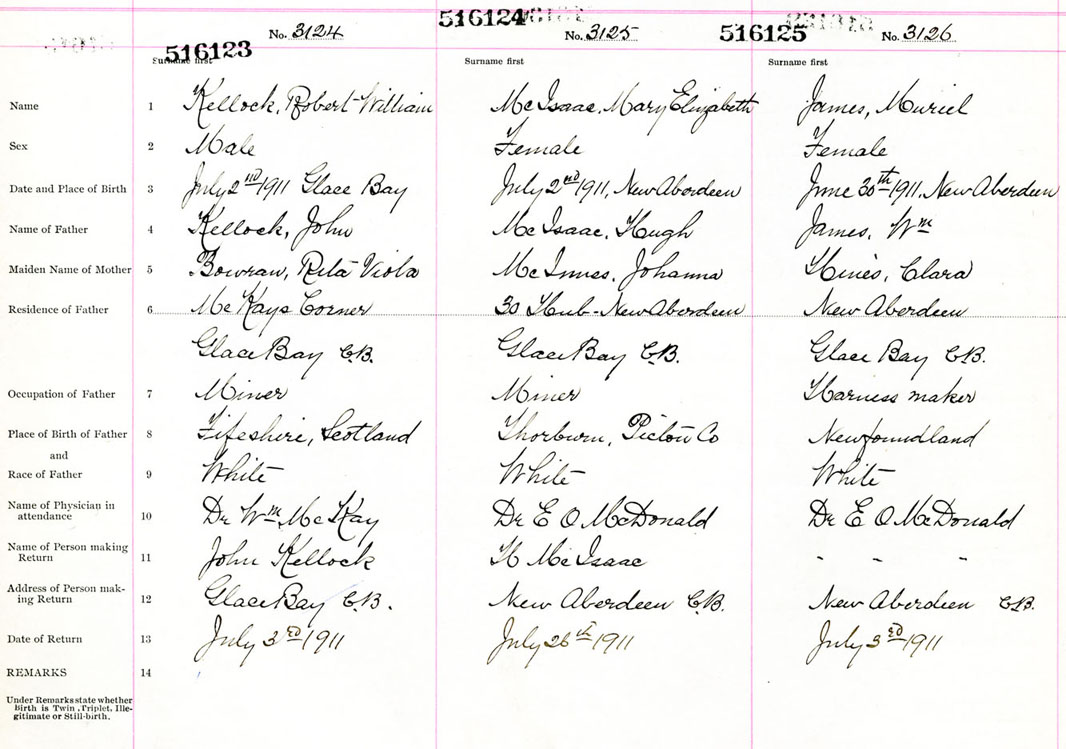 516123 No. 3124 516124 No. 3125 516125 No. 3126
Surname first Surname first Surname first
Name 1 Kellock, Robert William McIsaac, Mary Elizabeth James, Muriel
Sex 2 Male Female Female
Date and Place of Birth 3 July 2nd 1911 Glace Bay July 2nd 1911, New Aberdeen June 30th 1911, New Aberdeen
Name of Father 4 Kellock, John McIsaac, Hugh James, Wm
Maiden Name of Mother 5 Bowran, Rita Viola McInnes, Johanna Hines, Clara
Residence of Father 6 McKays Corner 30 Hub - New Aberdeen New Aberdeen
Glace Bay C.B. Glace Bay C.B. Glace Bay C.B.
Occupation of Father 7 Miner Miner Harness maker
Place of Birth of Father 8 Fifeshire, Scotland Thorburn, Pictou Co Newfoundland
and
Race of Father 9 White White White
Name of Physician in
attendance 10 Dr Wm McKay Dr E O McDonald Dr E O McDonald
Name of Person making
Return 11 John Kellock H McIsaac - - -
Address of Person mak-
ing Return 12 Glace Bay C.B. New Aberdeen C.B. New Aberdeen C.B.
Date of Return 13 July 3rd 1911 July 26th 1911 July 3rd 1911
REMARKS 14
Under Remarks state whether
Birth is Twin, Triplet, Ille-
gitimate or Still-birth.